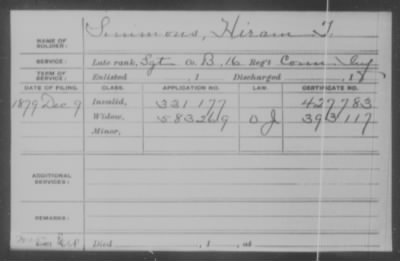 NAME OF SOLDIER: Simmons, Hiram T.
SERVICE: Late rank, Sgt Co. B, 16 Reg't Conn Inf
TERM OF SERVICE: Enlisted , 1 Discharged , 1
DATE OF FILING. CLASS. APPLICATION NO. LAW. CERTIFICATE NO.
1879 Dec 9 Invalid, 331 177 427783
Widow, 583269 393117
Minor,
ADDITIONAL SERVICES:
REMARKS:
Died , 1 , at